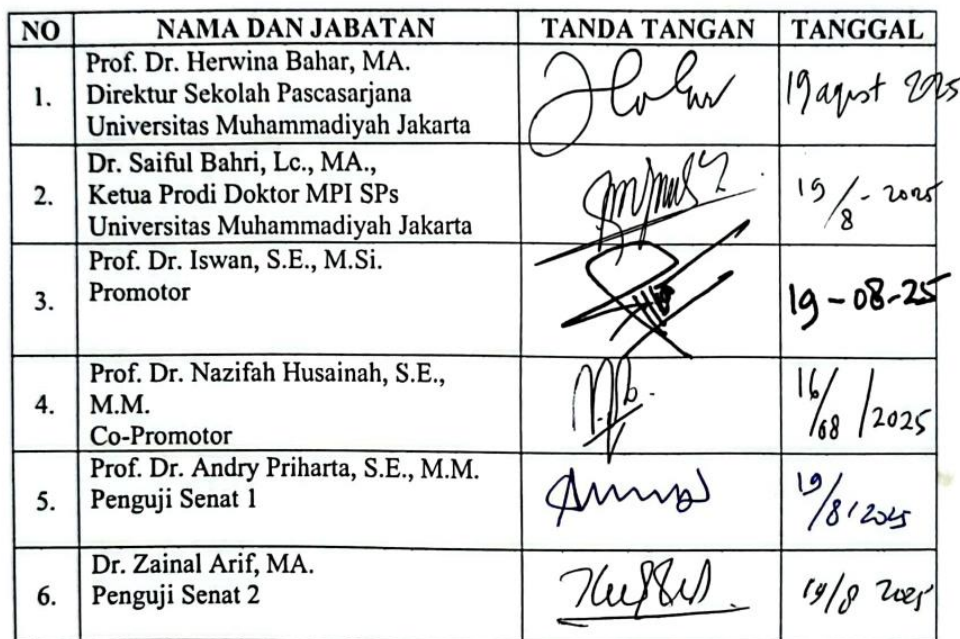 NO NAMA DAN JABATAN TANDA TANGAN TANGGAL
Prof. Dr. Herwina Bahar, MA.
1. Direktur Sekolah Pascasarjana 19 agust 2025
Universitas Muhammadiyah Jakarta
Dr. Saiful Bahri, Lc., MA.,
2. Ketua Prodi Doktor MPI SPs 19/8 - 2025
Universitas Muhammadiyah Jakarta
Prof. Dr. Iswan, S.E., M.Si.
3. Promotor 19-08-25
Prof. Dr. Nazifah Husainah, S.E.,
4. M.M. 16/08/2025
Co-Promotor
Prof. Dr. Andry Priharta, S.E., M.M.
5. Penguji Senat 1 19/8/2025
Dr. Zainal Arif, MA.
6. Penguji Senat 2 19/8 2025